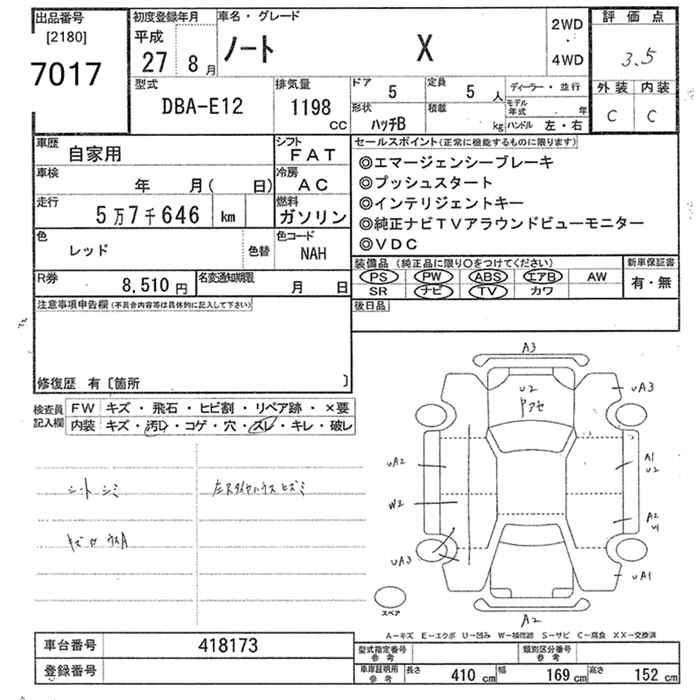 出品番号 初度登録年月 車名・グレード 評価点
[2180] 平成 27 8月 ノート X 2WD ・ 4WD 3.5
7017
型式 排気量 ドア 5 定員 5人 ディーラー・並行 外装 内装
DBA-E12 1198 CC 形状 ハッチB 積載 kg モデル年式 年 ハンドル 左・右 C C
車歴 自家用 シフト FAT セールスポイント(正常に機能するものに限ります)
車検 年 月( 日) 冷房 AC ◎エマージェンシーブレーキ
◎プッシュスタート
走行 5万7千646 km 燃料 ガソリン ◎インテリジェントキー
◎純正ナビTVアラウンドビューモニター
色 レッド 色替 色コード NAH ◎VDC
装備品(純正品に限り○をつけてください) 新車保証書
R券 8,510円 名変通知期限 月 日 PS PW ABS エアB AW 有・無
SR ナビ TV カワ
注意事項申告欄(不具合内容等は具体的に記入して下さい) 後日品
修復歴 有〔箇所 〕
検査員記入欄 FW キズ・飛石・ヒビ割・リペア跡・×要
内装 キズ・汚レ・コゲ・穴・スレ・キレ・破レ
シートシミ
A3
U2
UA3
UA2
A1
U2
W2
A2
U1
UA3
UA1
スペア
A2
A-キズ E-エクボ U-凹み W-補修跡 S-サビ C-腐食 XX-交換済
車台番号 418173 型式指定番号参考 類別区分番号参考
登録番号 車庫証明用参考 長さ 410 cm 幅 169 cm 高さ 152 cm